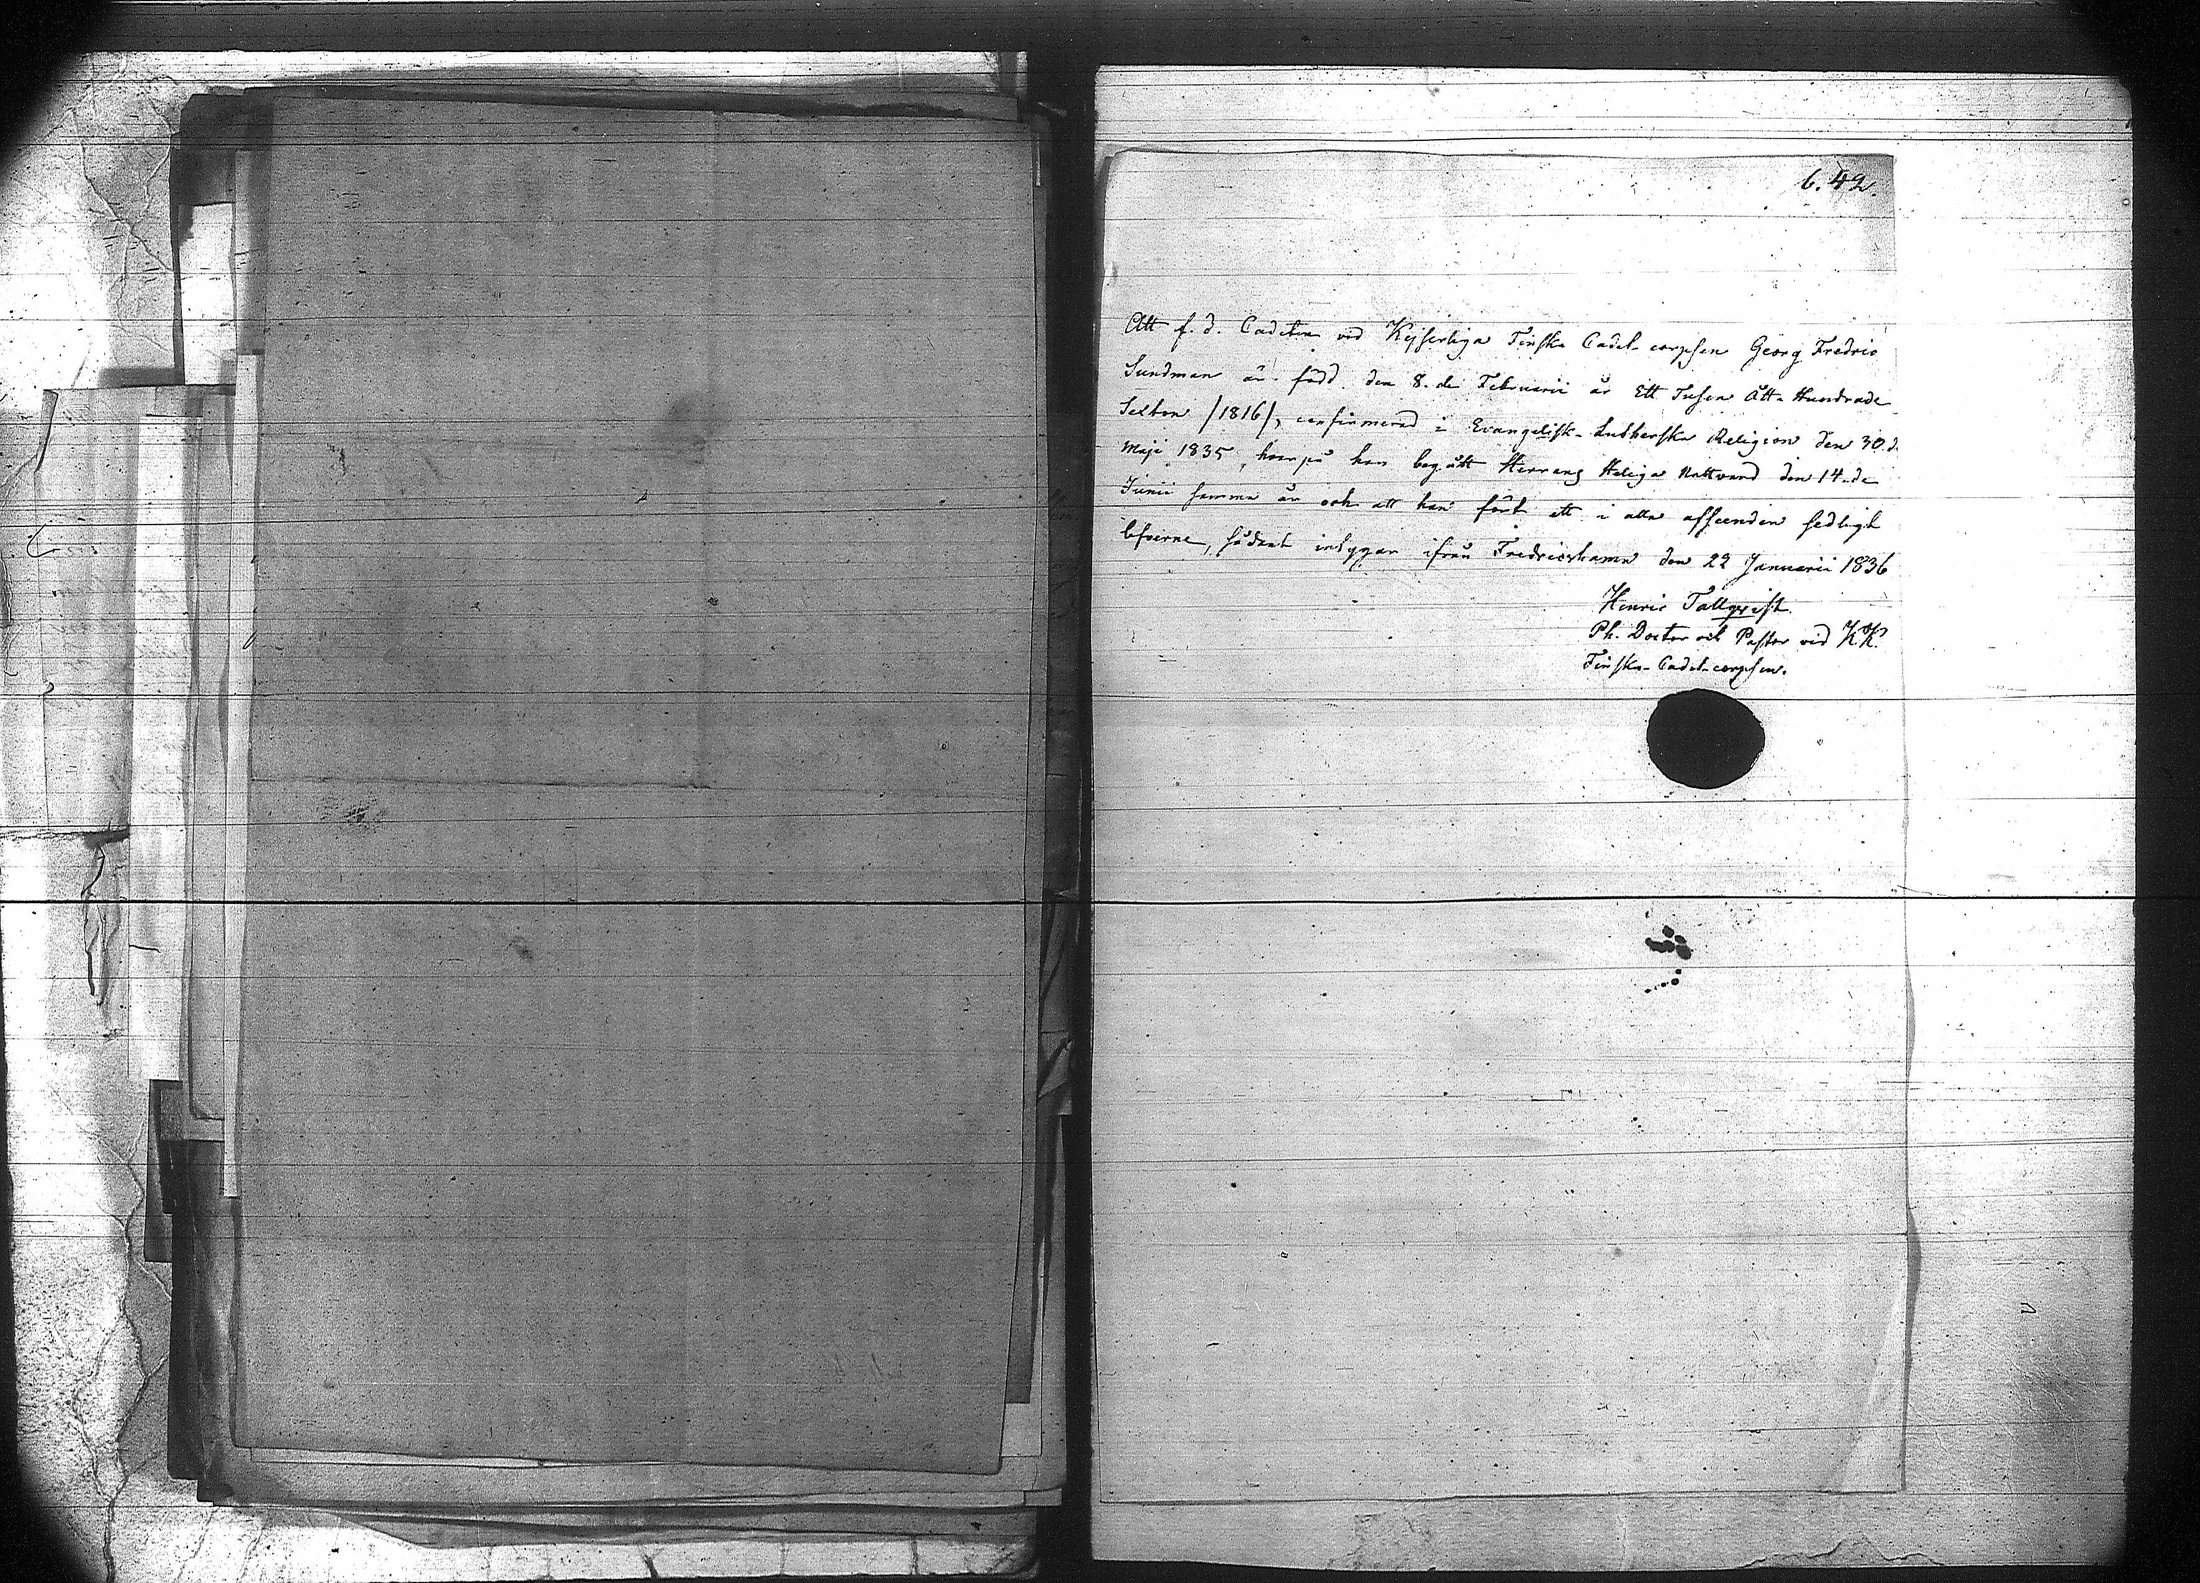 6.42.
Att f. d. Cadeten vid Kejserliga Finska Cadet-corpsen Georg Fredric
Sundman är född den 8.de Februarii år Ett Tusen Åtta Hundrade
Sexton /1816/, confirmerad i Evangelisk-Lutherska Religion den 30.de
Maji 1835, hvarpå han begått Herrans Heliga Nattvard den 14.de
Junii samma år och att han fört ett i alla afseenden sedligt
lefverne, sådant intygar ifrån Fredricshamn den 22 Januarii 1836
Henric Tallqvist.
Ph. Doctor och Pastor vid KK.
Finska-Cadet-corpsen.